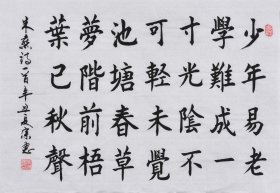 少年易老
學難成一
寸光陰不
可輕未覺
池塘春草
夢階前梧
葉已秋聲
朱熹詩一首辛丑夏